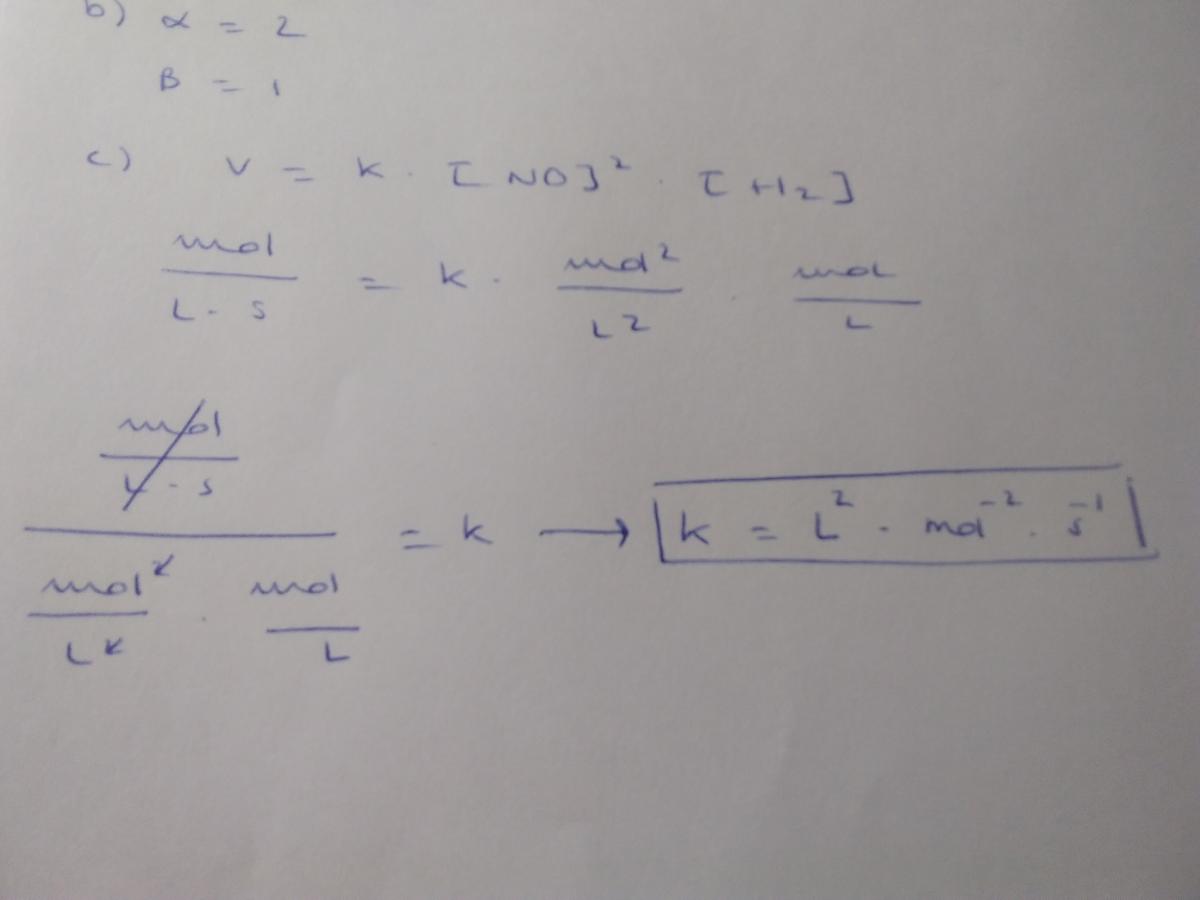 b) α = 2
B = 1
c) v = k · [NO]² · [H₂]
mol / L · s = k · mol² / L² · mol / L
mol / L · s / mol² / L² · mol / L = k → k = L² · mol⁻² · s⁻¹